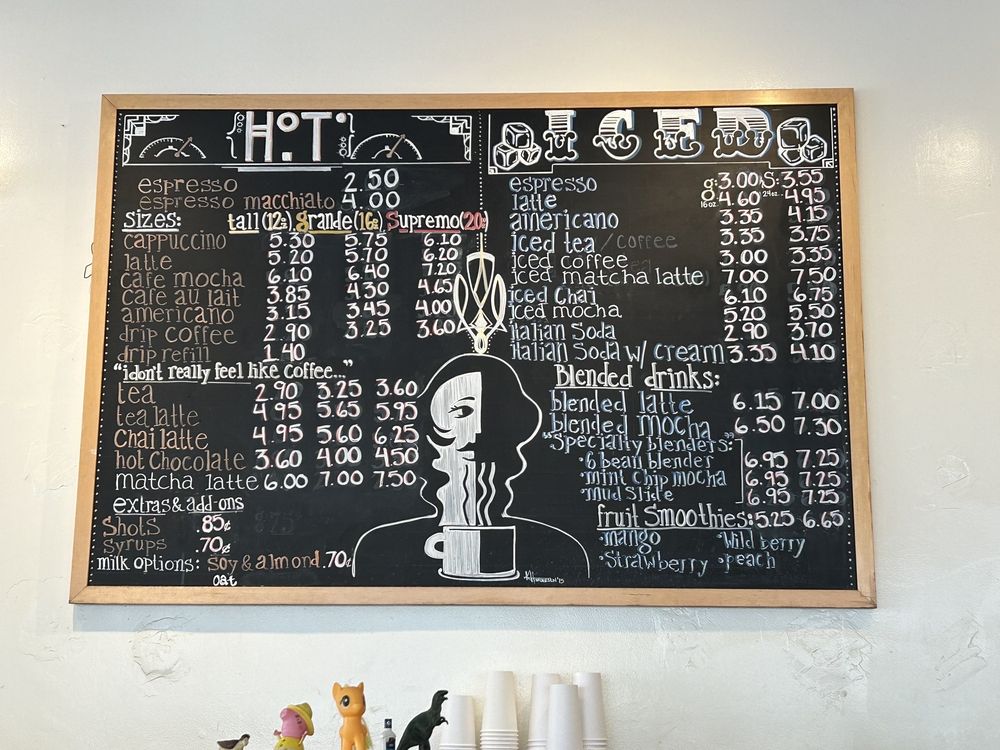 HOT
espresso 2.50
espresso macchiato 4.00
sizes: tall (12oz) grande (16oz) Supremo (20oz)
cappuccino 5.30 5.75 6.10
latte 5.20 5.70 6.20
cafe mocha 6.10 6.40 7.20
cafe au lait 3.85 4.30 4.65
americano 3.15 3.45 4.00
drip coffee 2.90 3.25 3.60
drip refill 1.40
"i dont really feel like coffee..."
tea 2.90 3.25 3.60
tea latte 4.95 5.65 5.95
Chai latte 4.95 5.60 6.25
hot Chocolate 3.60 4.00 4.50
matcha latte 6.00 7.00 7.50
extras & add-ons
Shots .85¢
Syrups .70¢
milk options: soy & almond .70¢
oat
ICED
espresso g: 3.00 S: 3.55
16oz. 24oz.
latte 4.60 4.95
americano 3.35 4.15
iced tea / coffee 3.35 3.75
iced coffee 3.00 3.35
iced matcha latte 7.00 7.50
iced Chai 6.10 6.75
iced mocha 5.20 5.50
italian Soda 2.90 3.70
italian Soda w/ cream 3.35 4.10
Blended drinks:
blended latte 6.15 7.00
blended mocha 6.50 7.30
"Specialty blenders:"
·6 bean blender 6.95 7.25
·mint chip mocha 6.95 7.25
·Mud Slide 6.95 7.25
fruit Smoothies: 5.25 6.65
·mango ·Wild berry
·Strawberry ·peach